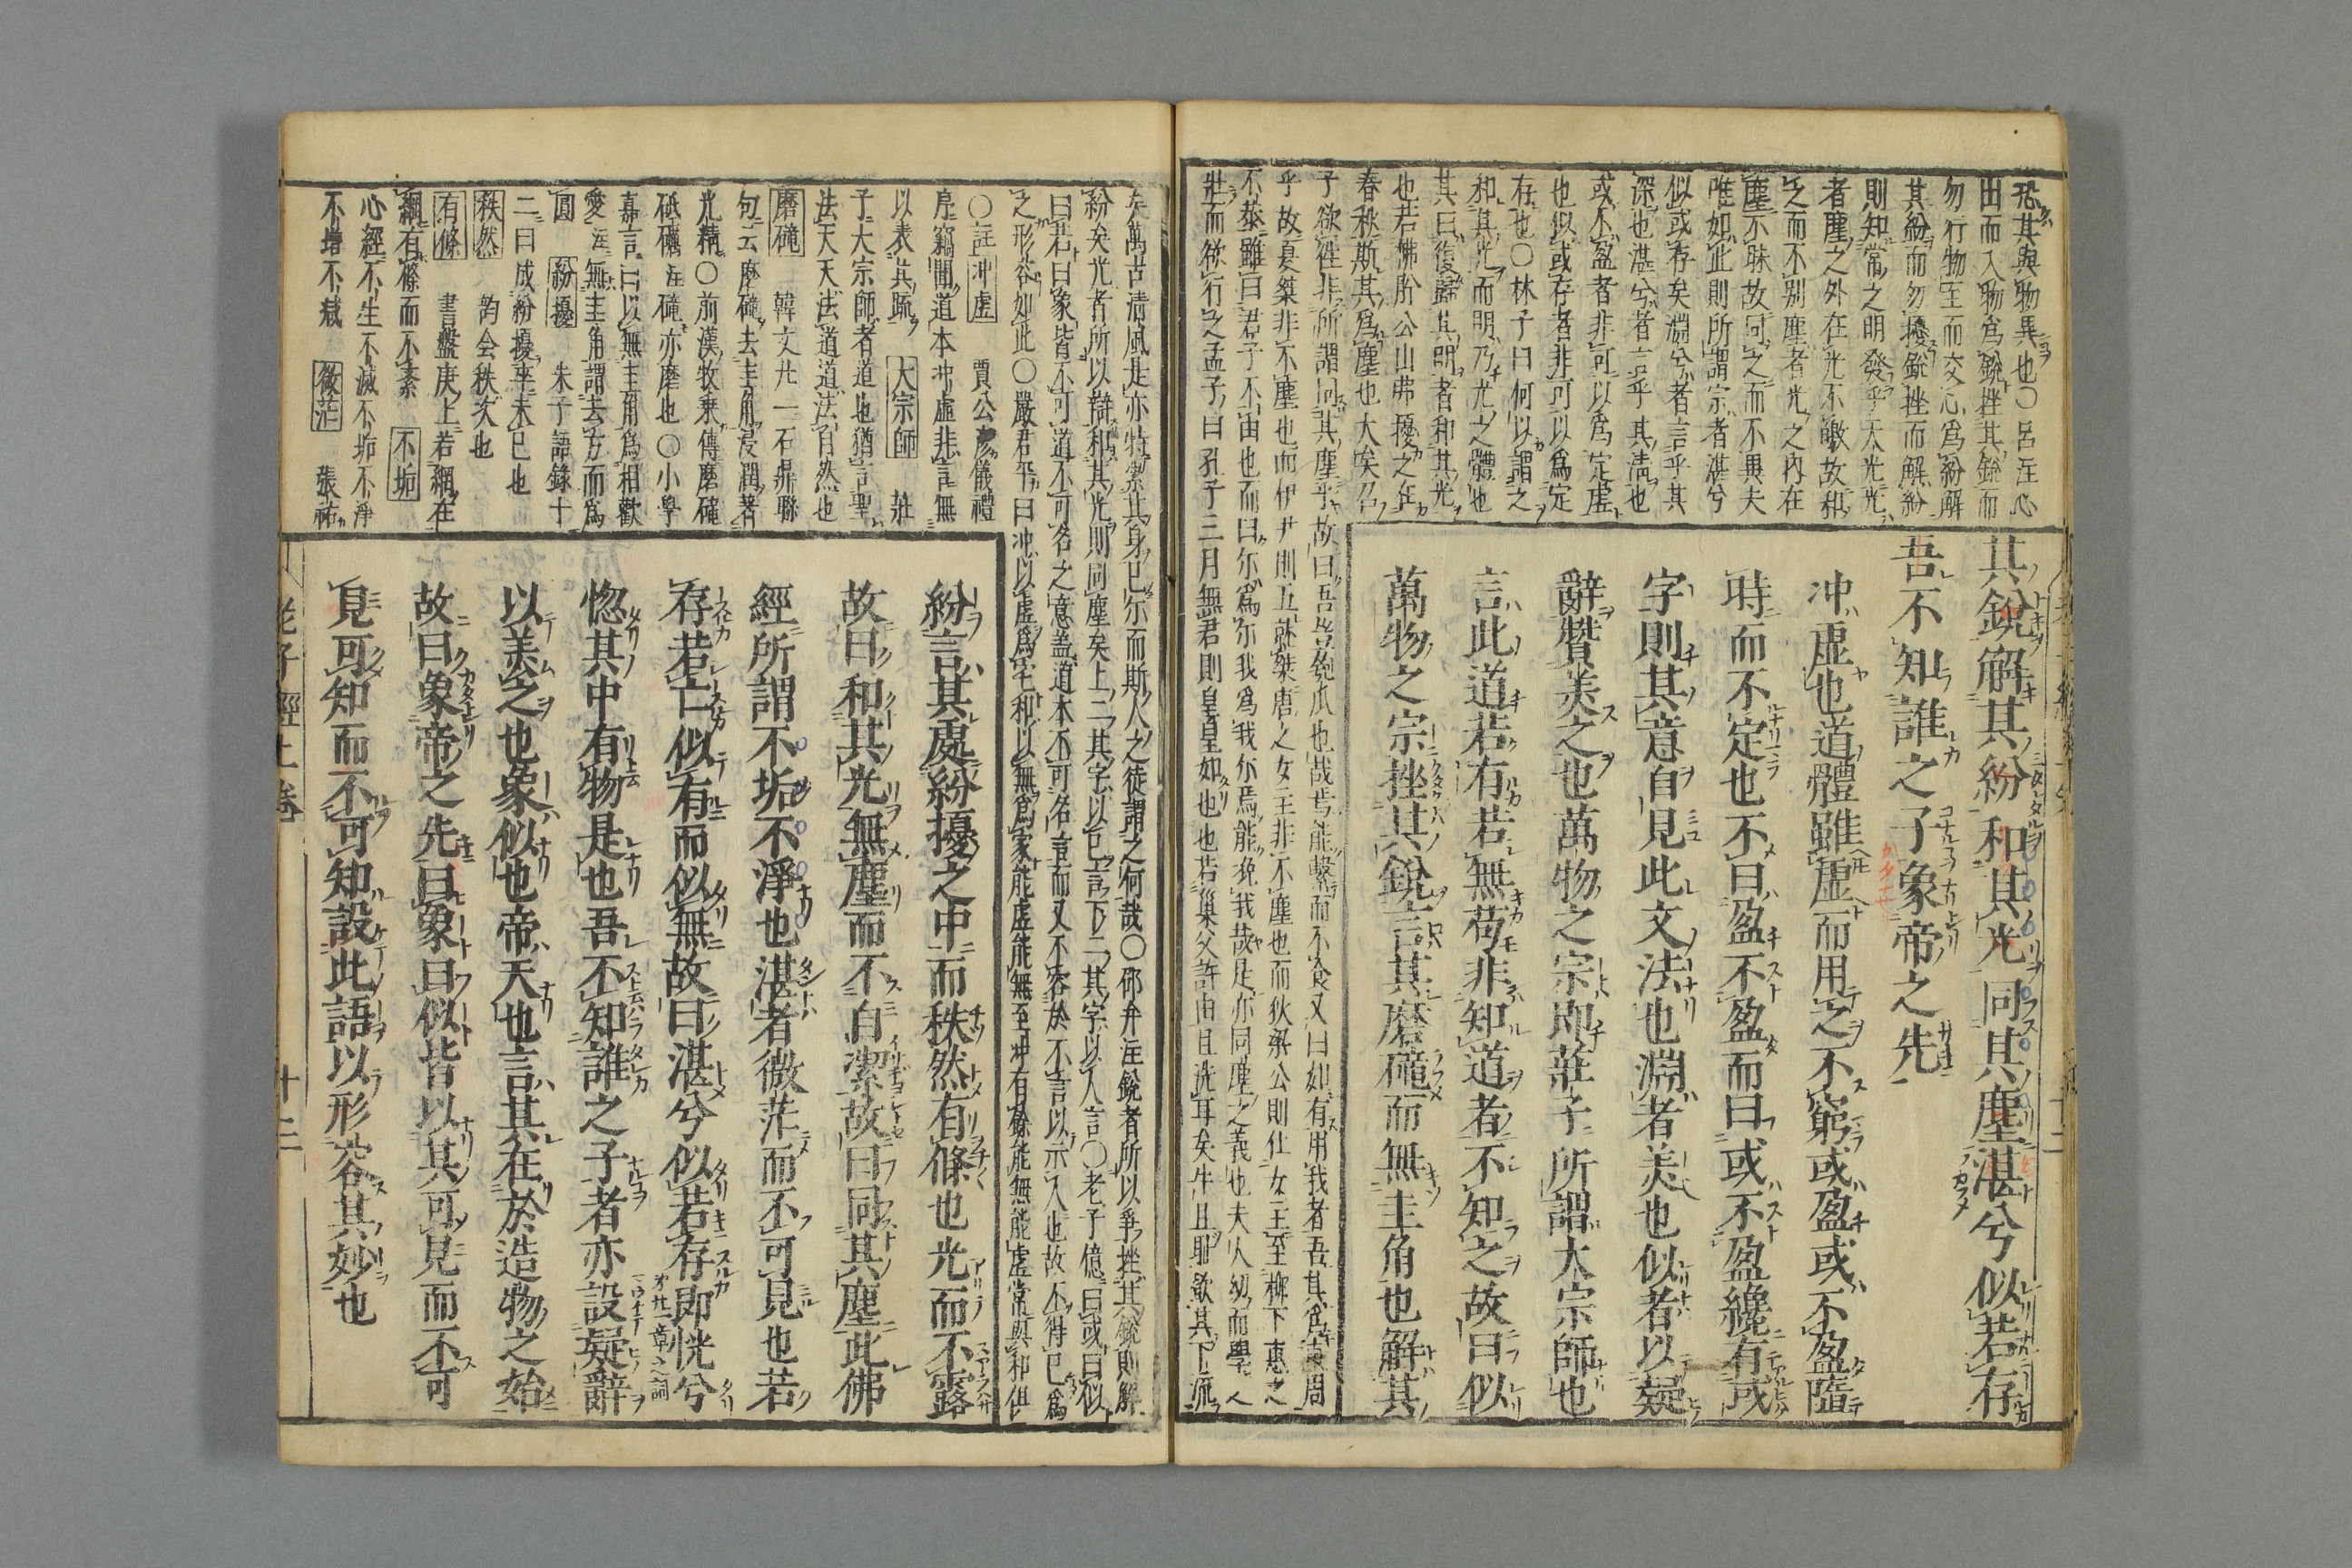 恐其與物異也○呂注心
出而入物爲銳挫其銳而
勿行物至而交心爲紛解
其紛而勿擾銳挫而解紛
則知常之明發乎天光光
者塵之外在光不皦故和
之而不別塵者光之内在
塵不昧故同之而不異夫
唯如此則所謂宗者湛兮
似或存矣淵兮者言乎其
深也湛兮者言乎其清也
或不盈者非可以爲定虚
也似或存者非可以爲定
存也○林子曰何以謂之
和其光而明乃光之體也
其曰復歸其明者和其光
也若佛肸公山弗擾之在
春秋斯其爲塵也大矣召
子欲往非所謂同其塵乎故曰吾豈匏瓜也哉焉能繫而不食又曰如有用我者吾其爲東周
乎故夏桀非不塵也而伊尹則五就桀唐之女主非不塵也而狄梁公則仕女主至柳下惠之
不恭雖曰君子不由也而曰尔爲尔我爲我尔焉能浼我哉是亦同塵之義也夫人幼而學
壯而欲行之孟子曰孔子三月無君則皇皇如也也若巢父許由且洗耳矣牛且恥飲其下流
其銳解其紛和其光同其塵湛兮似若存
吾不知誰之子象帝之先
冲虚也道體雖虚而用之不窮或盈或不盈隨
時而不定也不曰盈不盈而曰或不盈纔有或
字則其意自見此文法也淵者美也似者以疑
辭贊美之也萬物之宗即莊子所謂大宗師也
言此道若有若無苟非知道者不知之故曰似
萬物之宗挫其銳言其磨礲而無圭角也解其
矣萬古清風是亦特潔其身已尔而斯人之徒謂之何哉○邵弁注銳者所以爭挫其銳則解
紛矣光者所以辯和其光則同塵矣上二其字以己言下二其字以人言○老子億曰或曰似
曰若曰象皆不可道不可名之意蓋道本不可名言而又不容於不言以示人也故不得已爲
之形容如此○嚴君平曰冲以虚爲宅和以無爲家能虚能無至冲有餘能無能虚常與和俱
○註冲虚　賈公彦儀禮
序竊聞道本冲虚非言無
以表其疏　大宗師　莊
子大宗師者道也猶言聖
法天天法道道法自然也
磨礲　韓文廿一石鼎聯
句云磨礲去圭角浸潤著
光精○前漢枚乘傳磨礲
砥礪注礲亦磨也○小學
嘉言曰以無圭角爲相歡
愛注無圭角謂去方而爲
圓　紛擾　朱子語錄十
二曰成紛擾卒未已也
秩然　韵会秩次也
有條　書盤庚上若網在
綱有條而不紊　不垢
心經不生不滅不垢不淨
不增不減　微茫　張祐
紛言其處紛擾之中而秩然有條也光而不露
故曰和其光無塵而不自潔故曰同其塵此佛
經所謂不垢不淨也湛者微茫而不可見也若
存若亡似有而似無故曰湛兮似若存即恍兮
惚其中有物是也吾不知誰之子者亦設疑辭
以美之也象似也帝天也言其在於造物之始
故曰象帝之先曰象曰似皆以其可見而不可
見可知而不可知設此語以形容其妙也
老子經上卷　十二